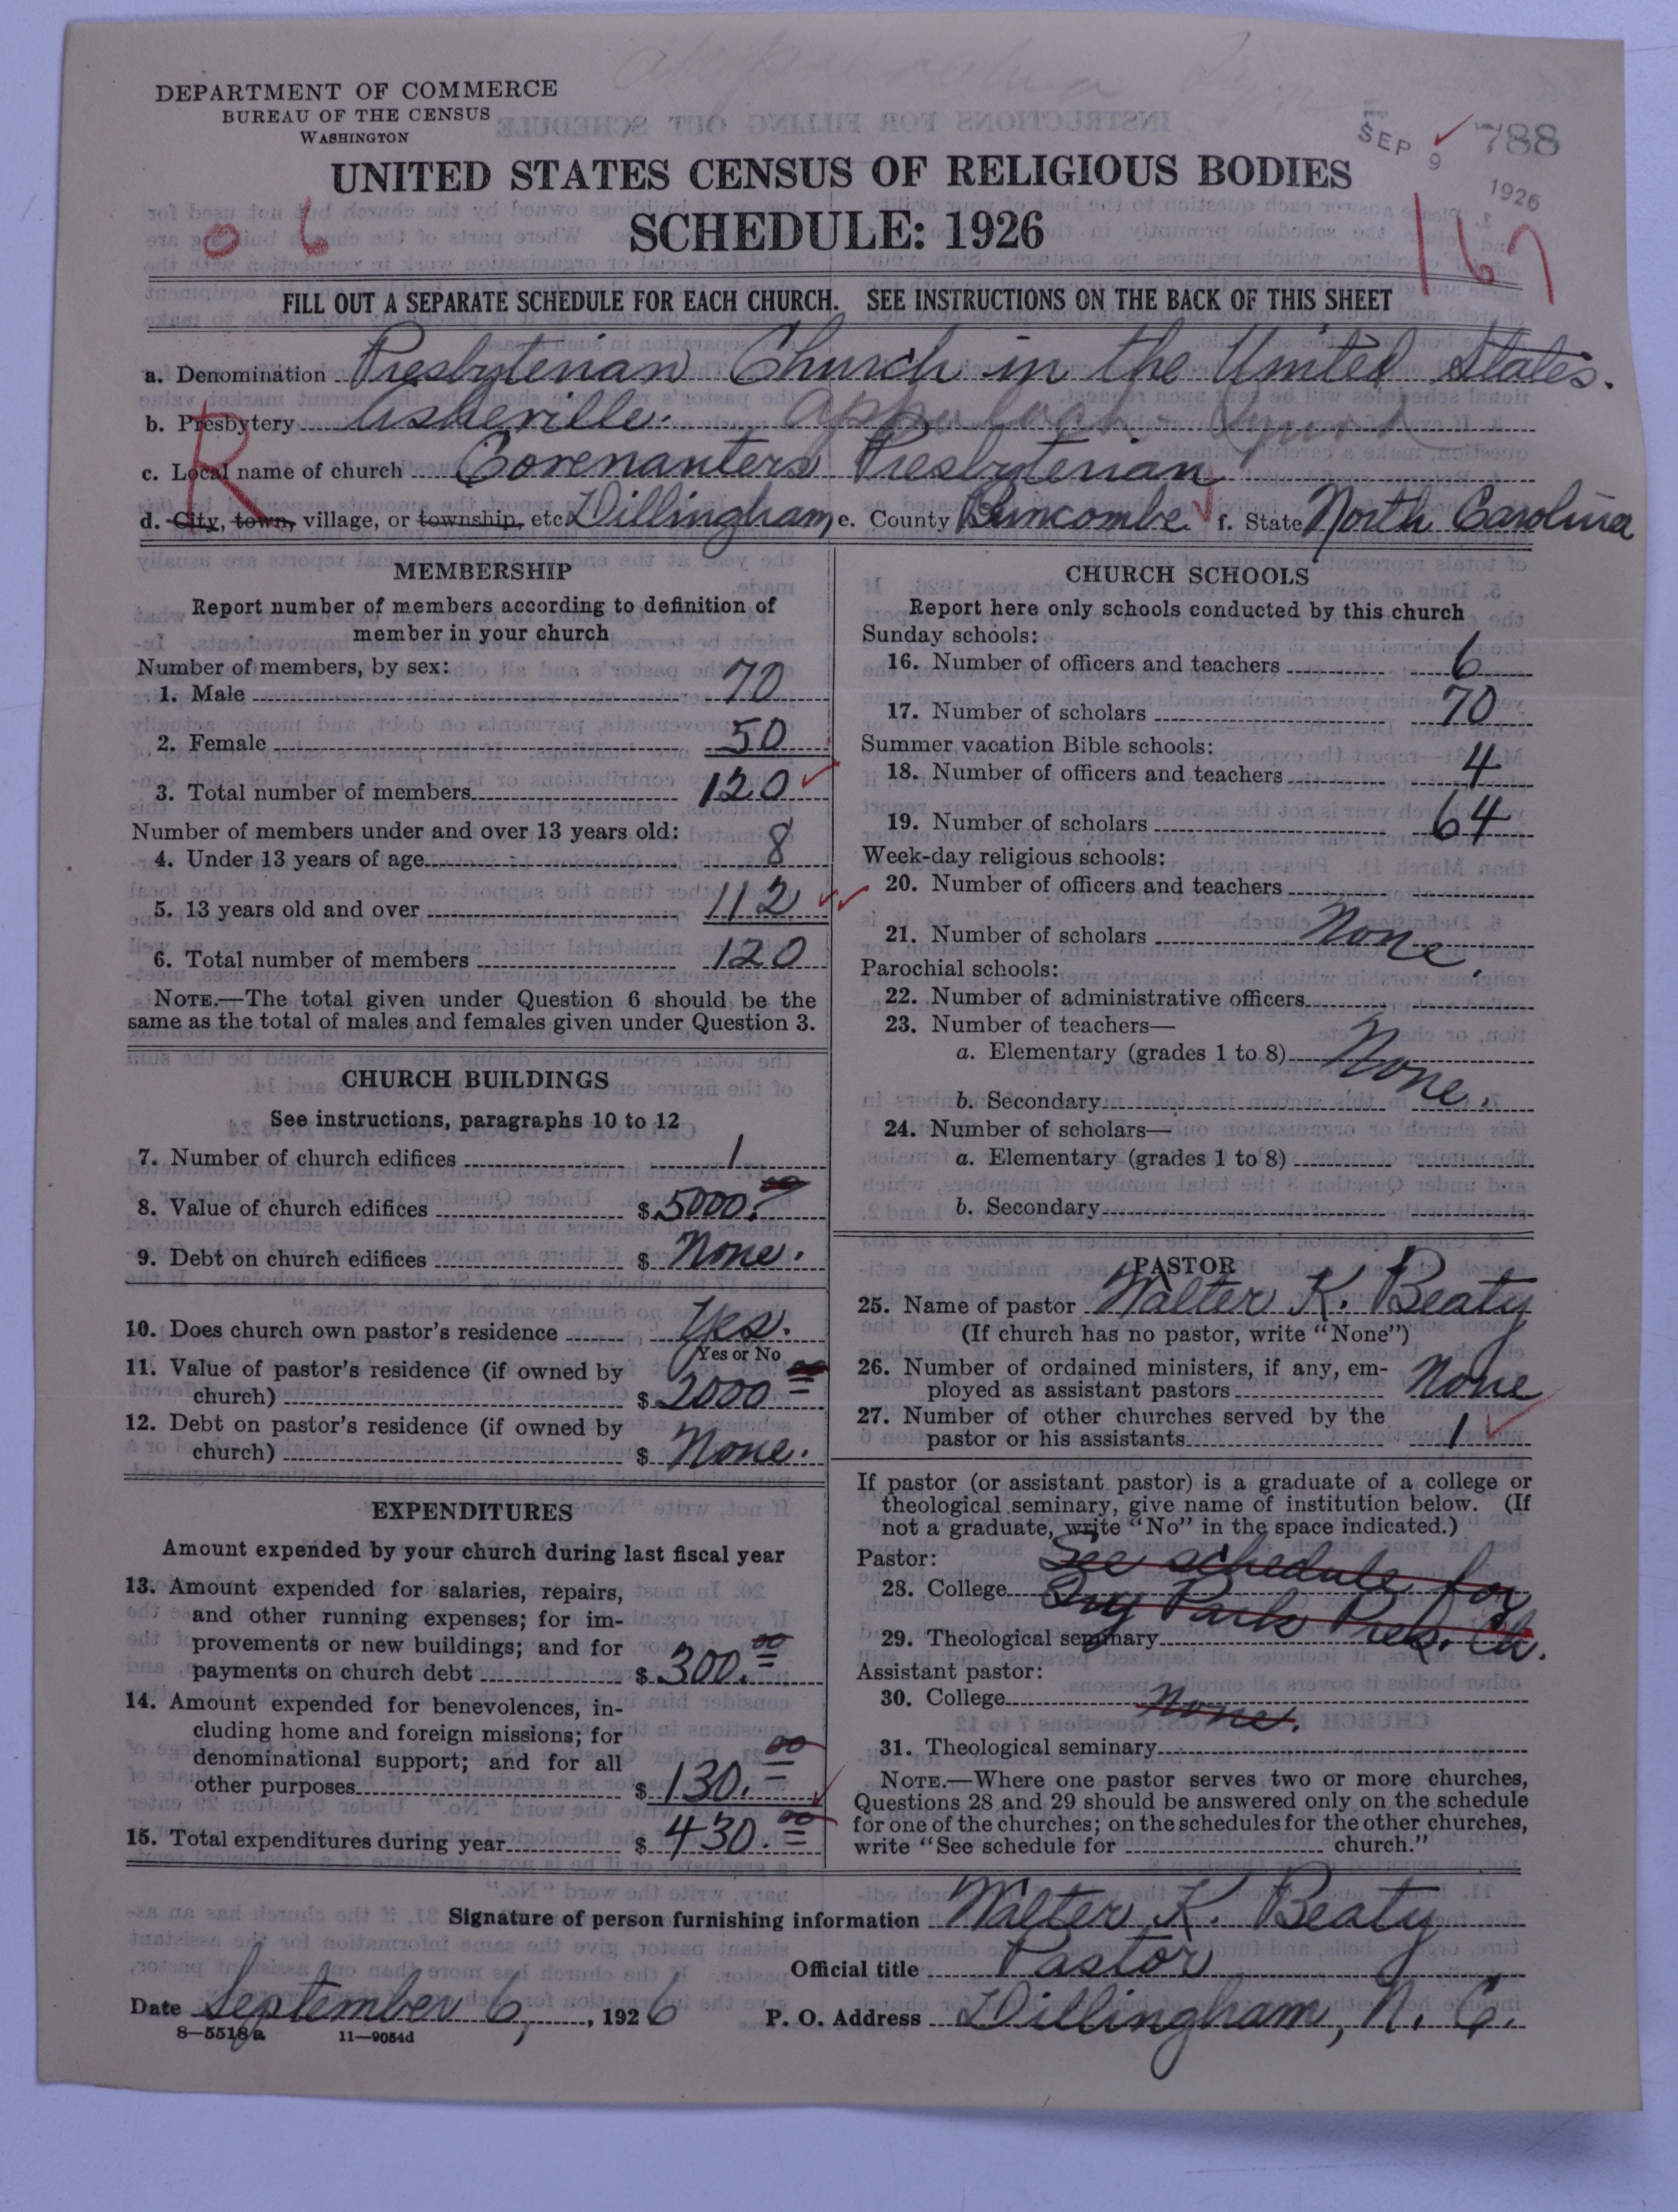 DEPARTMENT OF COMMERCE
BUREAU OF THE CENSUS
WASHINGTON
SEP 9 1926
788
UNITED STATES CENSUS OF RELIGIOUS BODIES
SCHEDULE: 1926
0 6
167
FILL OUT A SEPARATE SCHEDULE FOR EACH CHURCH. SEE INSTRUCTIONS ON THE BACK OF THIS SHEET
a. Denomination Presbyterian Church in the United States.
b. Presbytery Asheville.
R
c. Local name of church Covenanters Presbyterian
d. City, town, village, or township, etc. Dillingham, e. County Buncombe f. State North Carolina
MEMBERSHIP
Report number of members according to definition of
member in your church
Number of members, by sex:
1. Male 70
2. Female 50
3. Total number of members 120
Number of members under and over 13 years old:
4. Under 13 years of age 8
5. 13 years old and over 112
6. Total number of members 120
NOTE.—The total given under Question 6 should be the
same as the total of males and females given under Question 3.
CHURCH BUILDINGS
See instructions, paragraphs 10 to 12
7. Number of church edifices 1
8. Value of church edifices $ 5000.00
9. Debt on church edifices $ None.
10. Does church own pastor's residence Yes.
Yes or No
11. Value of pastor's residence (if owned by
church) $ 2000 00
12. Debt on pastor's residence (if owned by
church) $ None.
EXPENDITURES
Amount expended by your church during last fiscal year
13. Amount expended for salaries, repairs,
and other running expenses; for im-
provements or new buildings; and for
payments on church debt $ 300.00
14. Amount expended for benevolences, in-
cluding home and foreign missions; for
denominational support; and for all
other purposes $ 130.00
15. Total expenditures during year $ 430.00
CHURCH SCHOOLS
Report here only schools conducted by this church
Sunday schools:
16. Number of officers and teachers 6
17. Number of scholars 70
Summer vacation Bible schools:
18. Number of officers and teachers 4
19. Number of scholars 64
Week-day religious schools:
20. Number of officers and teachers
21. Number of scholars None.
Parochial schools:
22. Number of administrative officers
23. Number of teachers—
a. Elementary (grades 1 to 8) None.
b. Secondary
24. Number of scholars—
a. Elementary (grades 1 to 8)
b. Secondary
PASTOR
25. Name of pastor Walter K. Beaty
(If church has no pastor, write "None")
26. Number of ordained ministers, if any, em-
ployed as assistant pastors None
27. Number of other churches served by the
pastor or his assistants 1
If pastor (or assistant pastor) is a graduate of a college or
theological seminary, give name of institution below. (If
not a graduate, write "No" in the space indicated.)
Pastor: See schedule for
28. College Park Pres. Ch.
29. Theological seminary
Assistant pastor:
30. College None.
31. Theological seminary
NOTE.—Where one pastor serves two or more churches,
Questions 28 and 29 should be answered only on the schedule
for one of the churches; on the schedules for the other churches,
write "See schedule for church."
Signature of person furnishing information Walter K. Beaty
Official title Pastor
Date September 6, 1926 P. O. Address Dillingham, N. C.
8—5518a 11—9054d